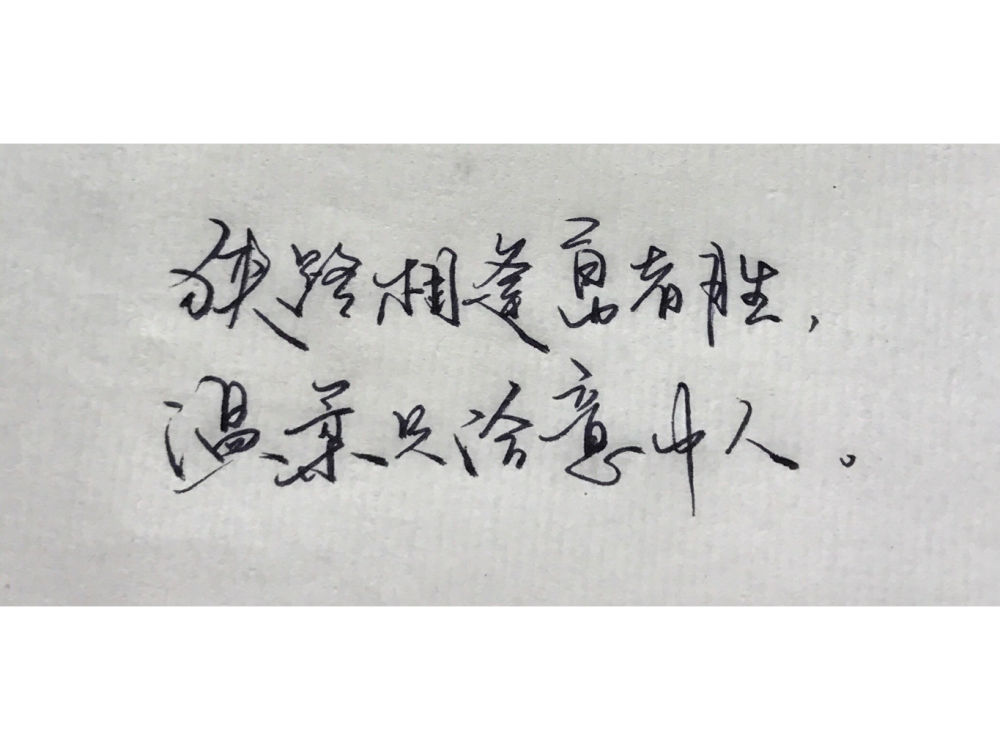 狭路相逢勇者胜，
温柔只给意中人。